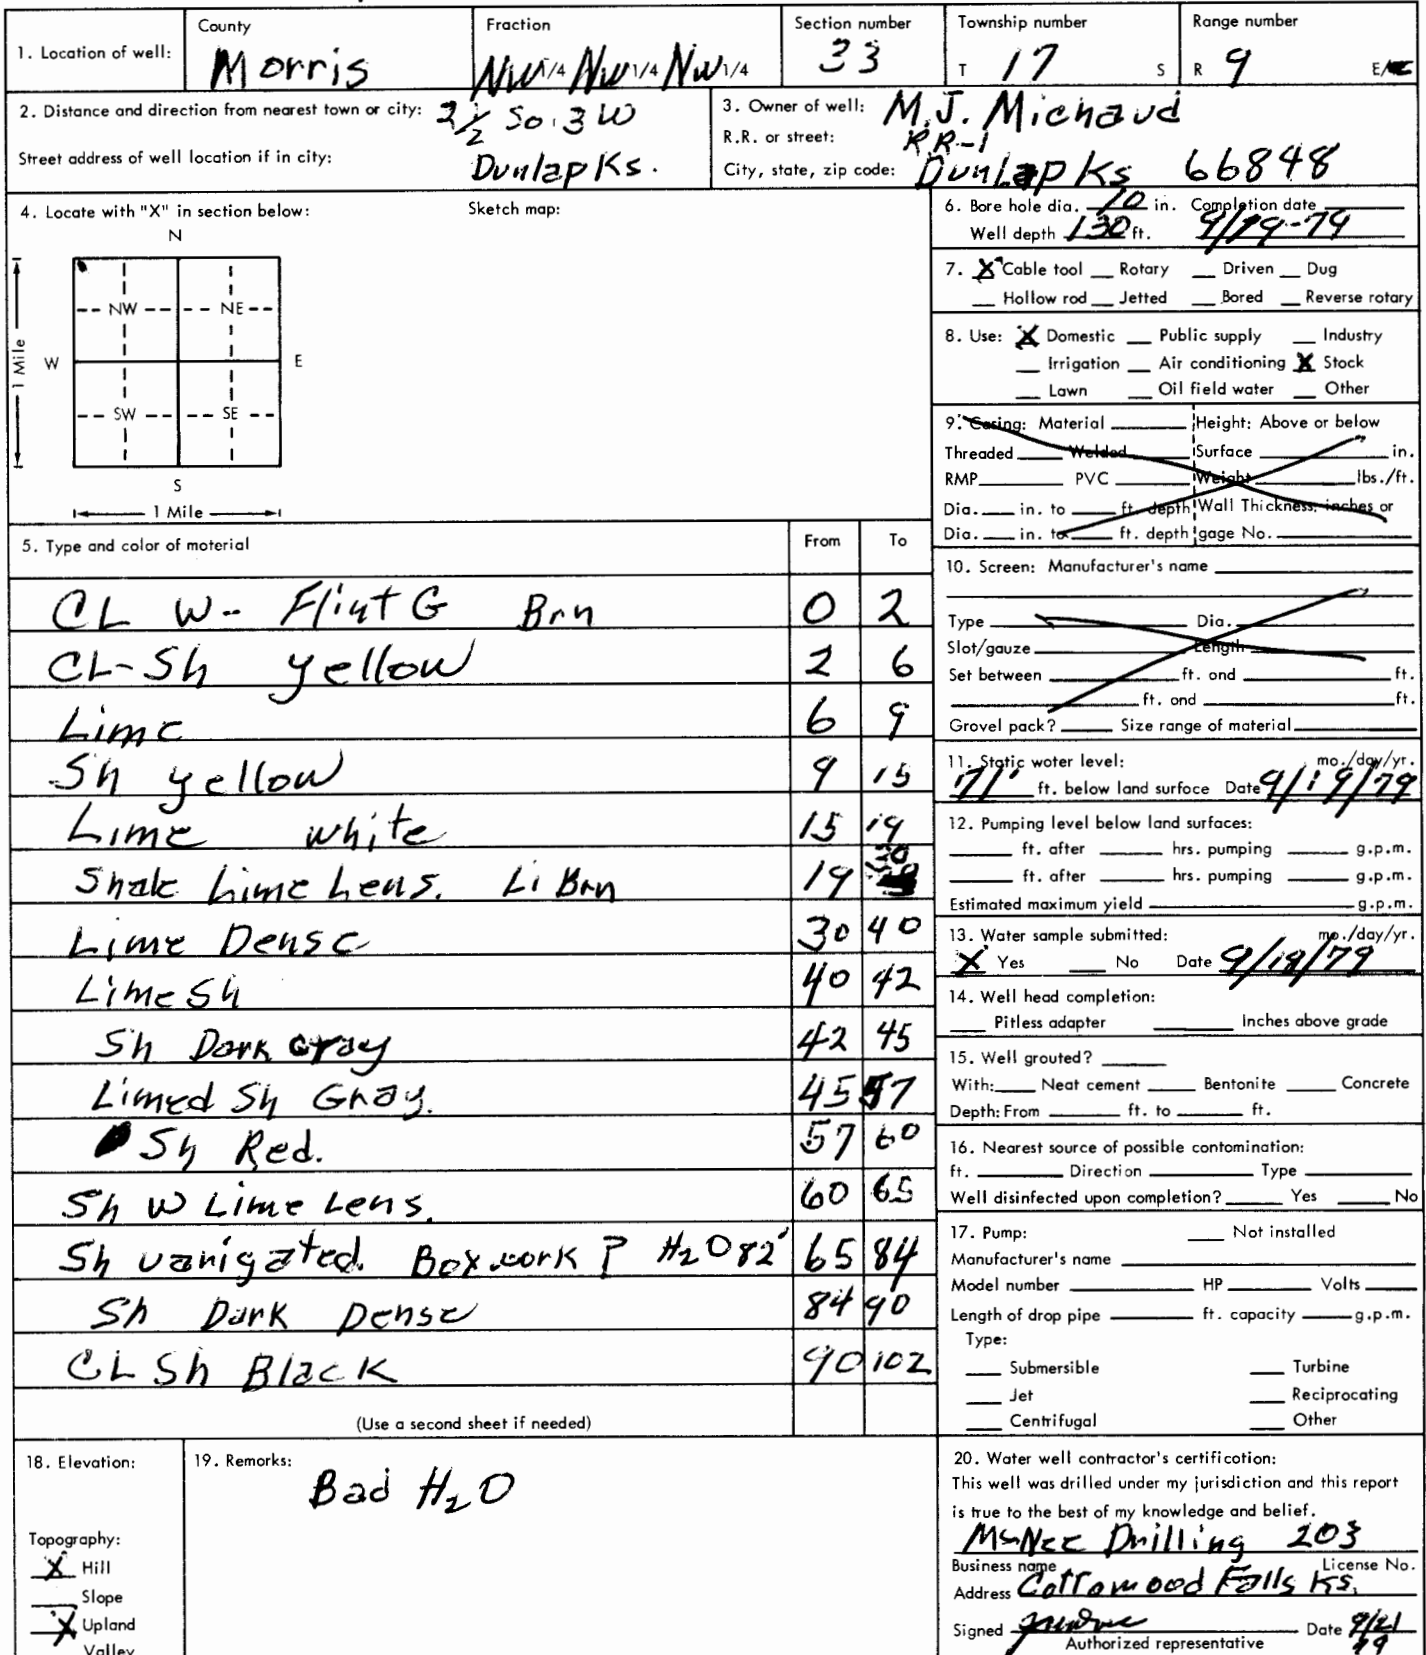 County Fraction Section number Township number Range number
1. Location of well: Morris NW 1/4 NW 1/4 NW 1/4 33 T 17 S R 9 E/
2. Distance and direction from nearest town or city: 2 1/2 So. 3 W
Street address of well location if in city: Dunlap Ks.
3. Owner of well: M.J. Michaud
R.R. or street: RR-1
City, state, zip code: Dunlap Ks 66848
4. Locate with "X" in section below: Sketch map:
N
NW NE
W E
1 Mile
SW SE
S
1 Mile
6. Bore hole dia. 10 in. Completion date
Well depth 130 ft. 9/19-79
7. X Cable tool Rotary Driven Dug
Hollow rod Jetted Bored Reverse rotary
8. Use: X Domestic Public supply Industry
Irrigation Air conditioning X Stock
Lawn Oil field water Other
9. Casing: Material Height: Above or below
Threaded Welded Surface in.
RMP PVC Weight lbs./ft.
Dia. in. to ft. depth Wall Thickness: inches or
Dia. in. to ft. depth gage No.
5. Type and color of material From To
CL W-- Flint G Brn 0 2
CL-Sh yellow 2 6
Lime 6 9
Sh yellow 9 15
Lime white 15 19
Shale Lime Lens. Li Brn 19 30
Lime Dense 30 40
Lime Sh 40 42
Sh Dark Gray 42 45
Limed Sh Gray. 45 57
Sh Red. 57 60
Sh W Lime Lens. 60 65
Sh varigated. Boxwork ? H2O 82' 65 84
Sh Dark Dense 84 90
CL Sh Black 90 102
(Use a second sheet if needed)
10. Screen: Manufacturer's name
Type Dia.
Slot/gauze Length
Set between ft. and ft.
ft. and ft.
Gravel pack? Size range of material
11. Static water level: mo./day/yr.
71' ft. below land surface Date 9/19/79
12. Pumping level below land surfaces:
ft. after hrs. pumping g.p.m.
ft. after hrs. pumping g.p.m.
Estimated maximum yield g.p.m.
13. Water sample submitted: mo./day/yr.
X Yes No Date 9/19/79
14. Well head completion:
Pitless adapter Inches above grade
15. Well grouted?
With: Neat cement Bentonite Concrete
Depth: From ft. to ft.
16. Nearest source of possible contamination:
ft. Direction Type
Well disinfected upon completion? Yes No
17. Pump: Not installed
Manufacturer's name
Model number HP Volts
Length of drop pipe ft. capacity g.p.m.
Type:
Submersible Turbine
Jet Reciprocating
Centrifugal Other
18. Elevation:
Topography:
X Hill
Slope
X Upland
Valley
19. Remarks:
Bad H2O
20. Water well contractor's certification:
This well was drilled under my jurisdiction and this report
is true to the best of my knowledge and belief.
McNee Drilling 203
Business name License No.
Address Cottonwood Falls Ks.
Signed Date 9/21
79
Authorized representative